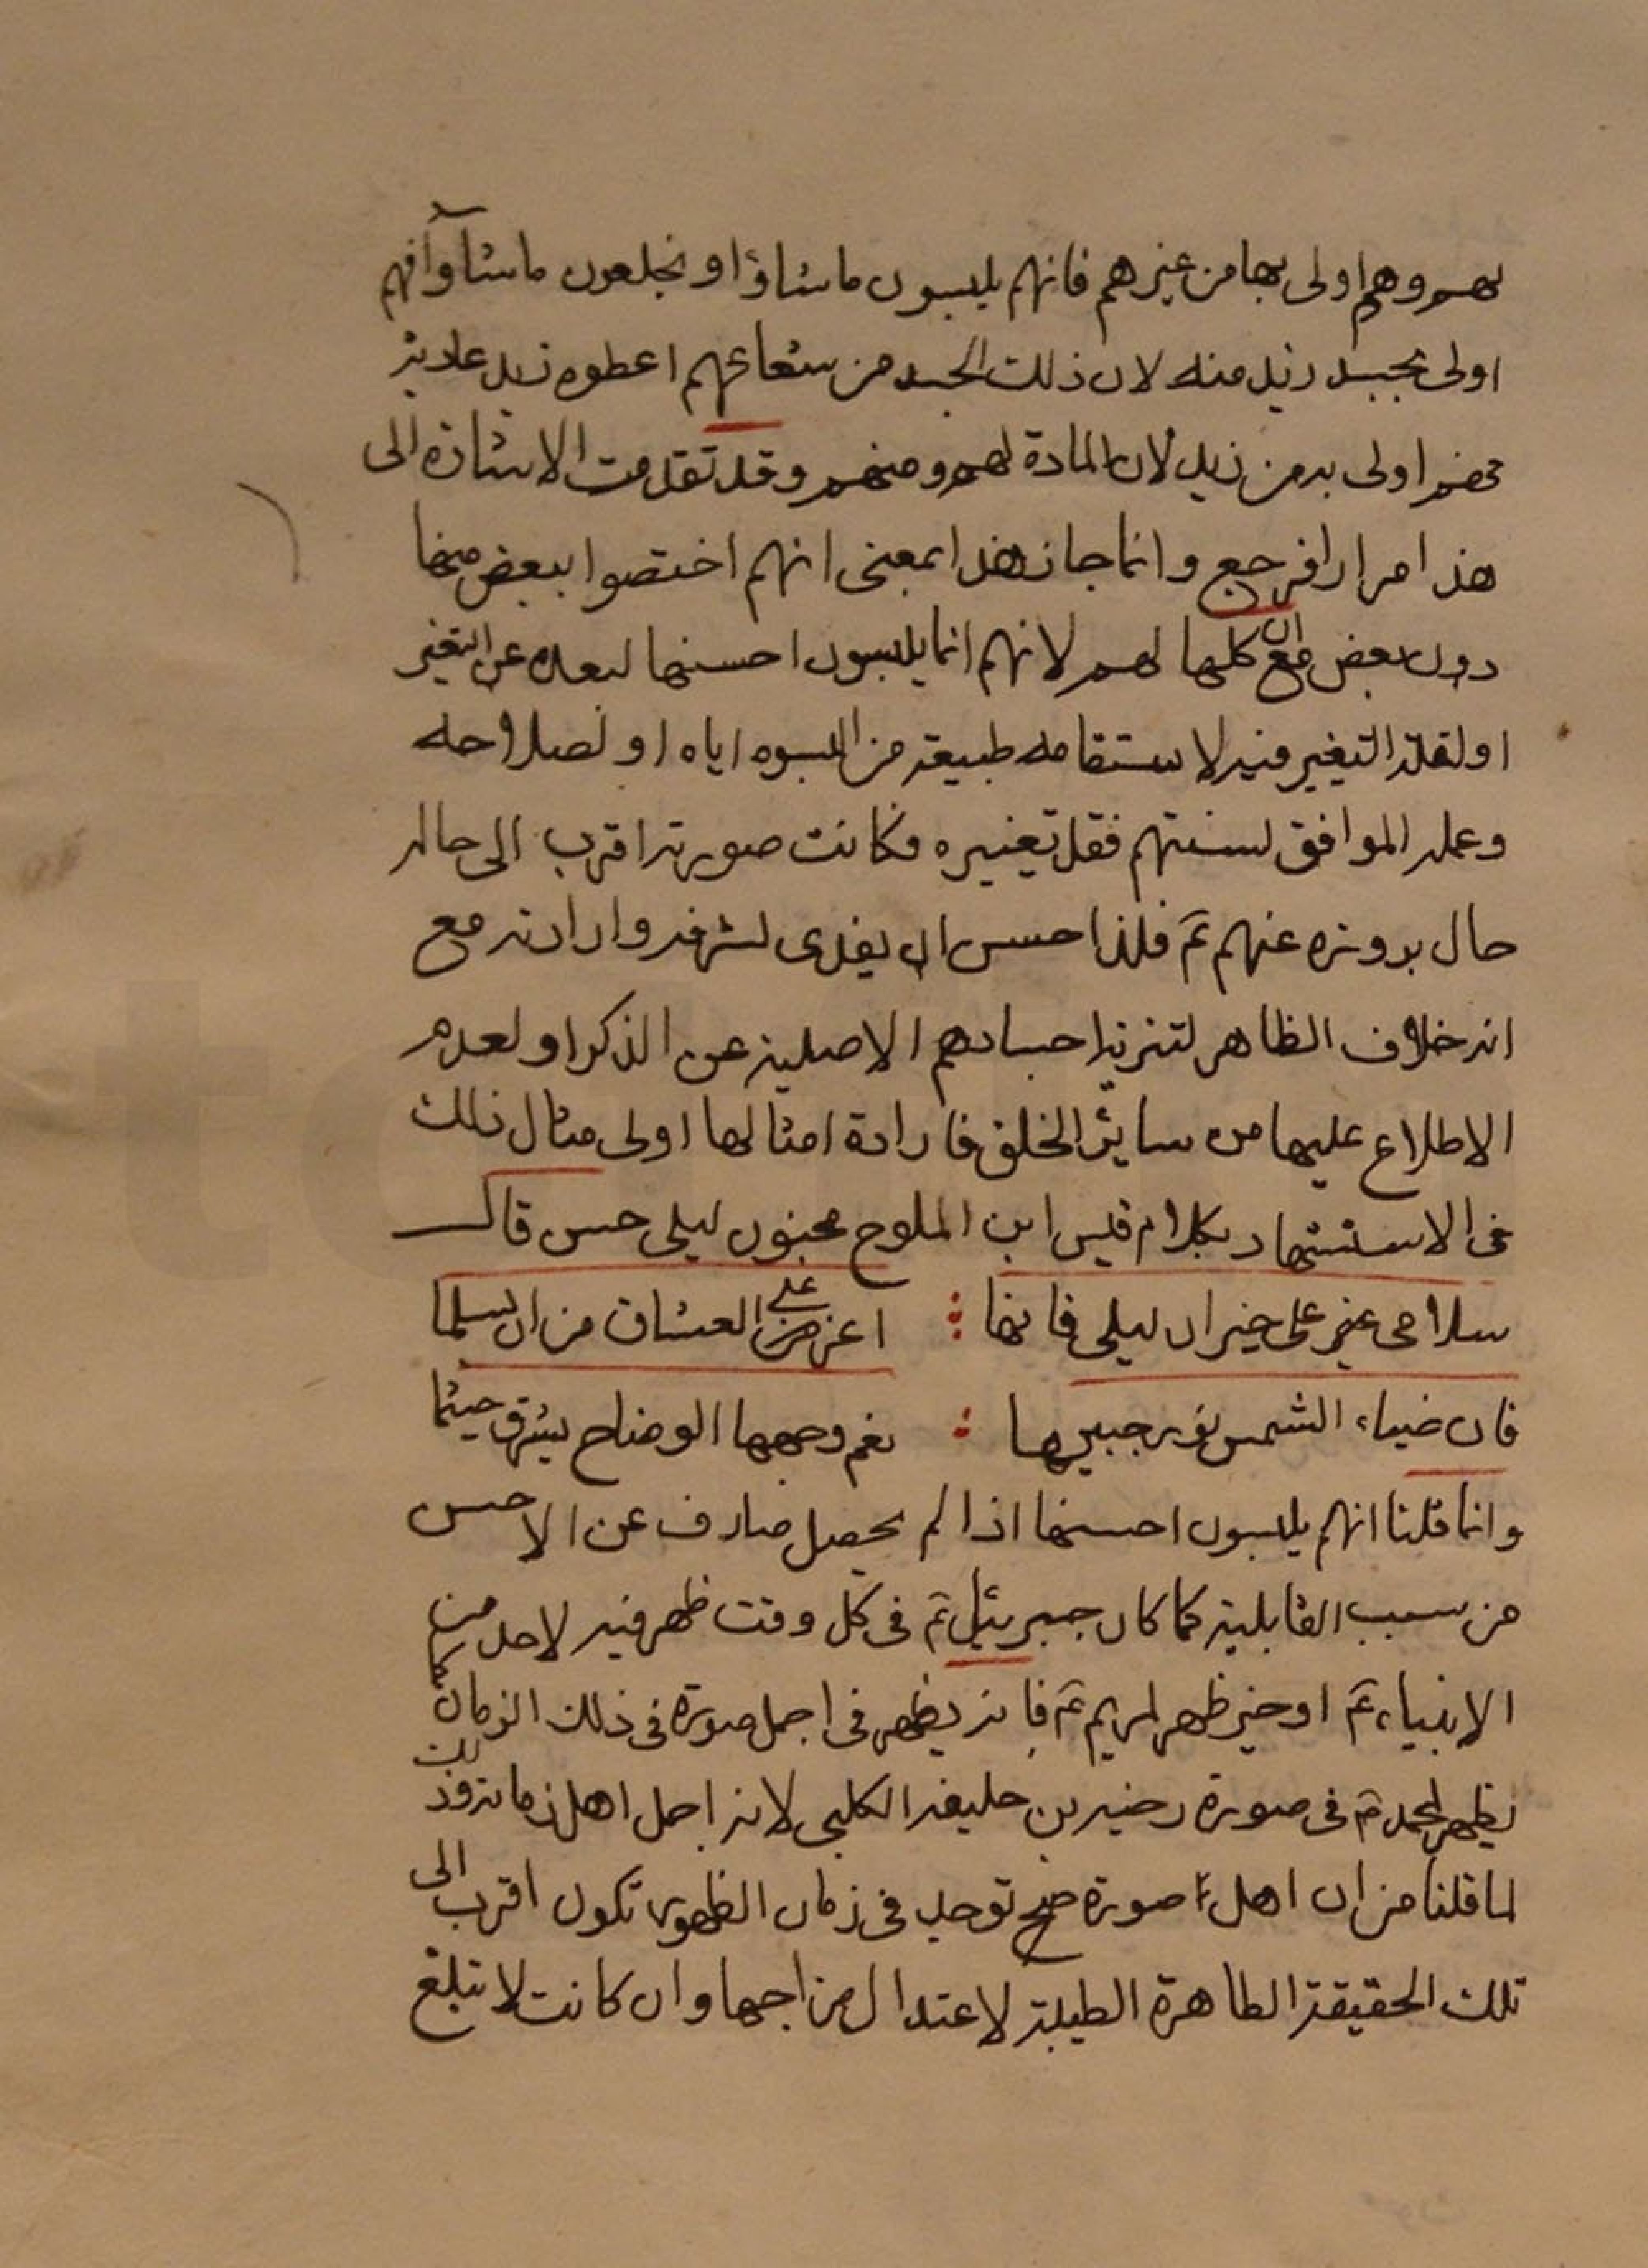 لهم وهم اولى بها من غيرهم فانهم يلبسون ما شاؤا ويخلعون ما شاؤا فهم
اولى بجسد زيد منه لان ذلك الجسد من شعاعهم اعطوه زيد عارية
فهم اولى به من زيد لان المادة لهم ومنهم وقد تقدمت الاشارة الى
هذا مرارا فرجع وانما جاز هذا بمعنى انهم اختصوا ببعض منها
دون بعض مع ان كلها لهم لانهم انما يلبسون احسنها لبعده عن التغير
او لقلة التغير فيه لاستقامة طبيعة من البسوه اياه او لصلاحه
وعمله الموافق لسنتهم فقل تغييره فكانت صورته اقرب الى حاله
حال بروزه عنهم ع فلذا حسن ان يفدى لشرفه وارادته مع
انه خلاف الظاهر لتنزيه اجسادهم الاصلية عن الذكر او لعدم
الاطلاع عليها من سائر الخلق فارادة امثالها اولى مثال ذلك
فى الاستشهاد بكلام قيس ابن الملوح مجنون ليلى حين قال
سلامى على جيران ليلى فانها : اعز على العشاق من ان يسلما
فان ضياء الشمس نور جبينها : نعم وجهها الوضاح يشرق حيثما
وانما قلنا انهم يلبسون احسنها اذا لم يحصل صارف عن الاحسن
من سبب القابلية كما كان جبرئيل ع فى كل وقت ظهر فيه لاحد من
الانبياء ع او حين ظهر لمريم ع فانه يظهر فى اجمل صورة فى ذلك الزمان كما
يظهر لمحمد ص فى صورة دحية بن خليفة الكلبى لانه اجمل اهل زمانه وذلك
لما قلنا من ان صورة توجد فى زمان الظهور تكون اقرب الى
تلك الحقيقة الطاهرة الطيبة لاعتدال مزاجها وان كانت لا تبلغ